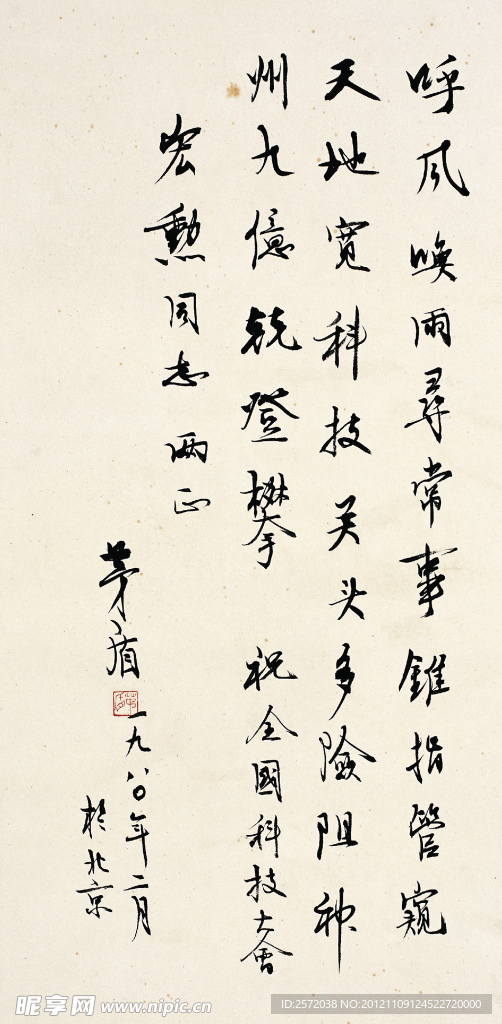 呼风唤雨寻常事錐指管窺
天地寬科技关头多險阻神
州九億競登攀 祝全國科技大會
宏勳同志两正
茅盾
一九八〇年二月
於北京
昵享网 www.nipic.cn
ID:2572038 NO:20121109124522720000